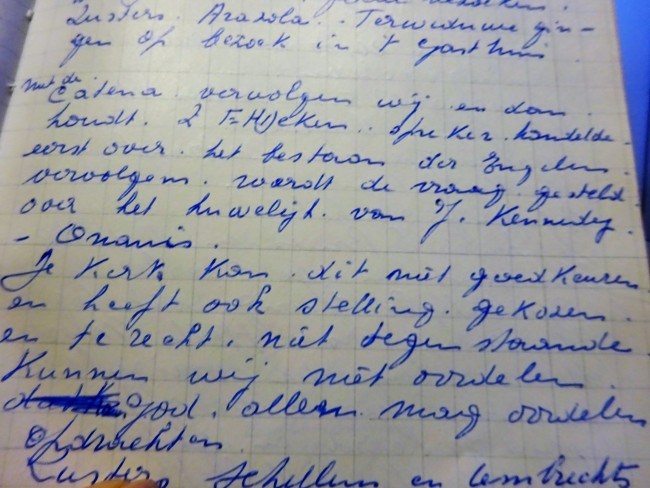 Zusters. Arazola. Terweduwe gin-
gen op bezoek in 't gasthuis
met de
Catena vervolgen wij en dan
houdt. spreker. handelde
eerst over. het bestaan der Engelen
vervolgens. wordt de vraag. gesteld
over het huwelijk van J. Kennedy.
- Onanis.
De Kerk Kan. dit niet goedkeuren
en heeft ook stelling. gekozen.
en terecht. niet tegenstaande
Kunnen wij niet oordelen
god. alleen mag oordelen
Opdrachten
Zusters Schellens en Lembrechts